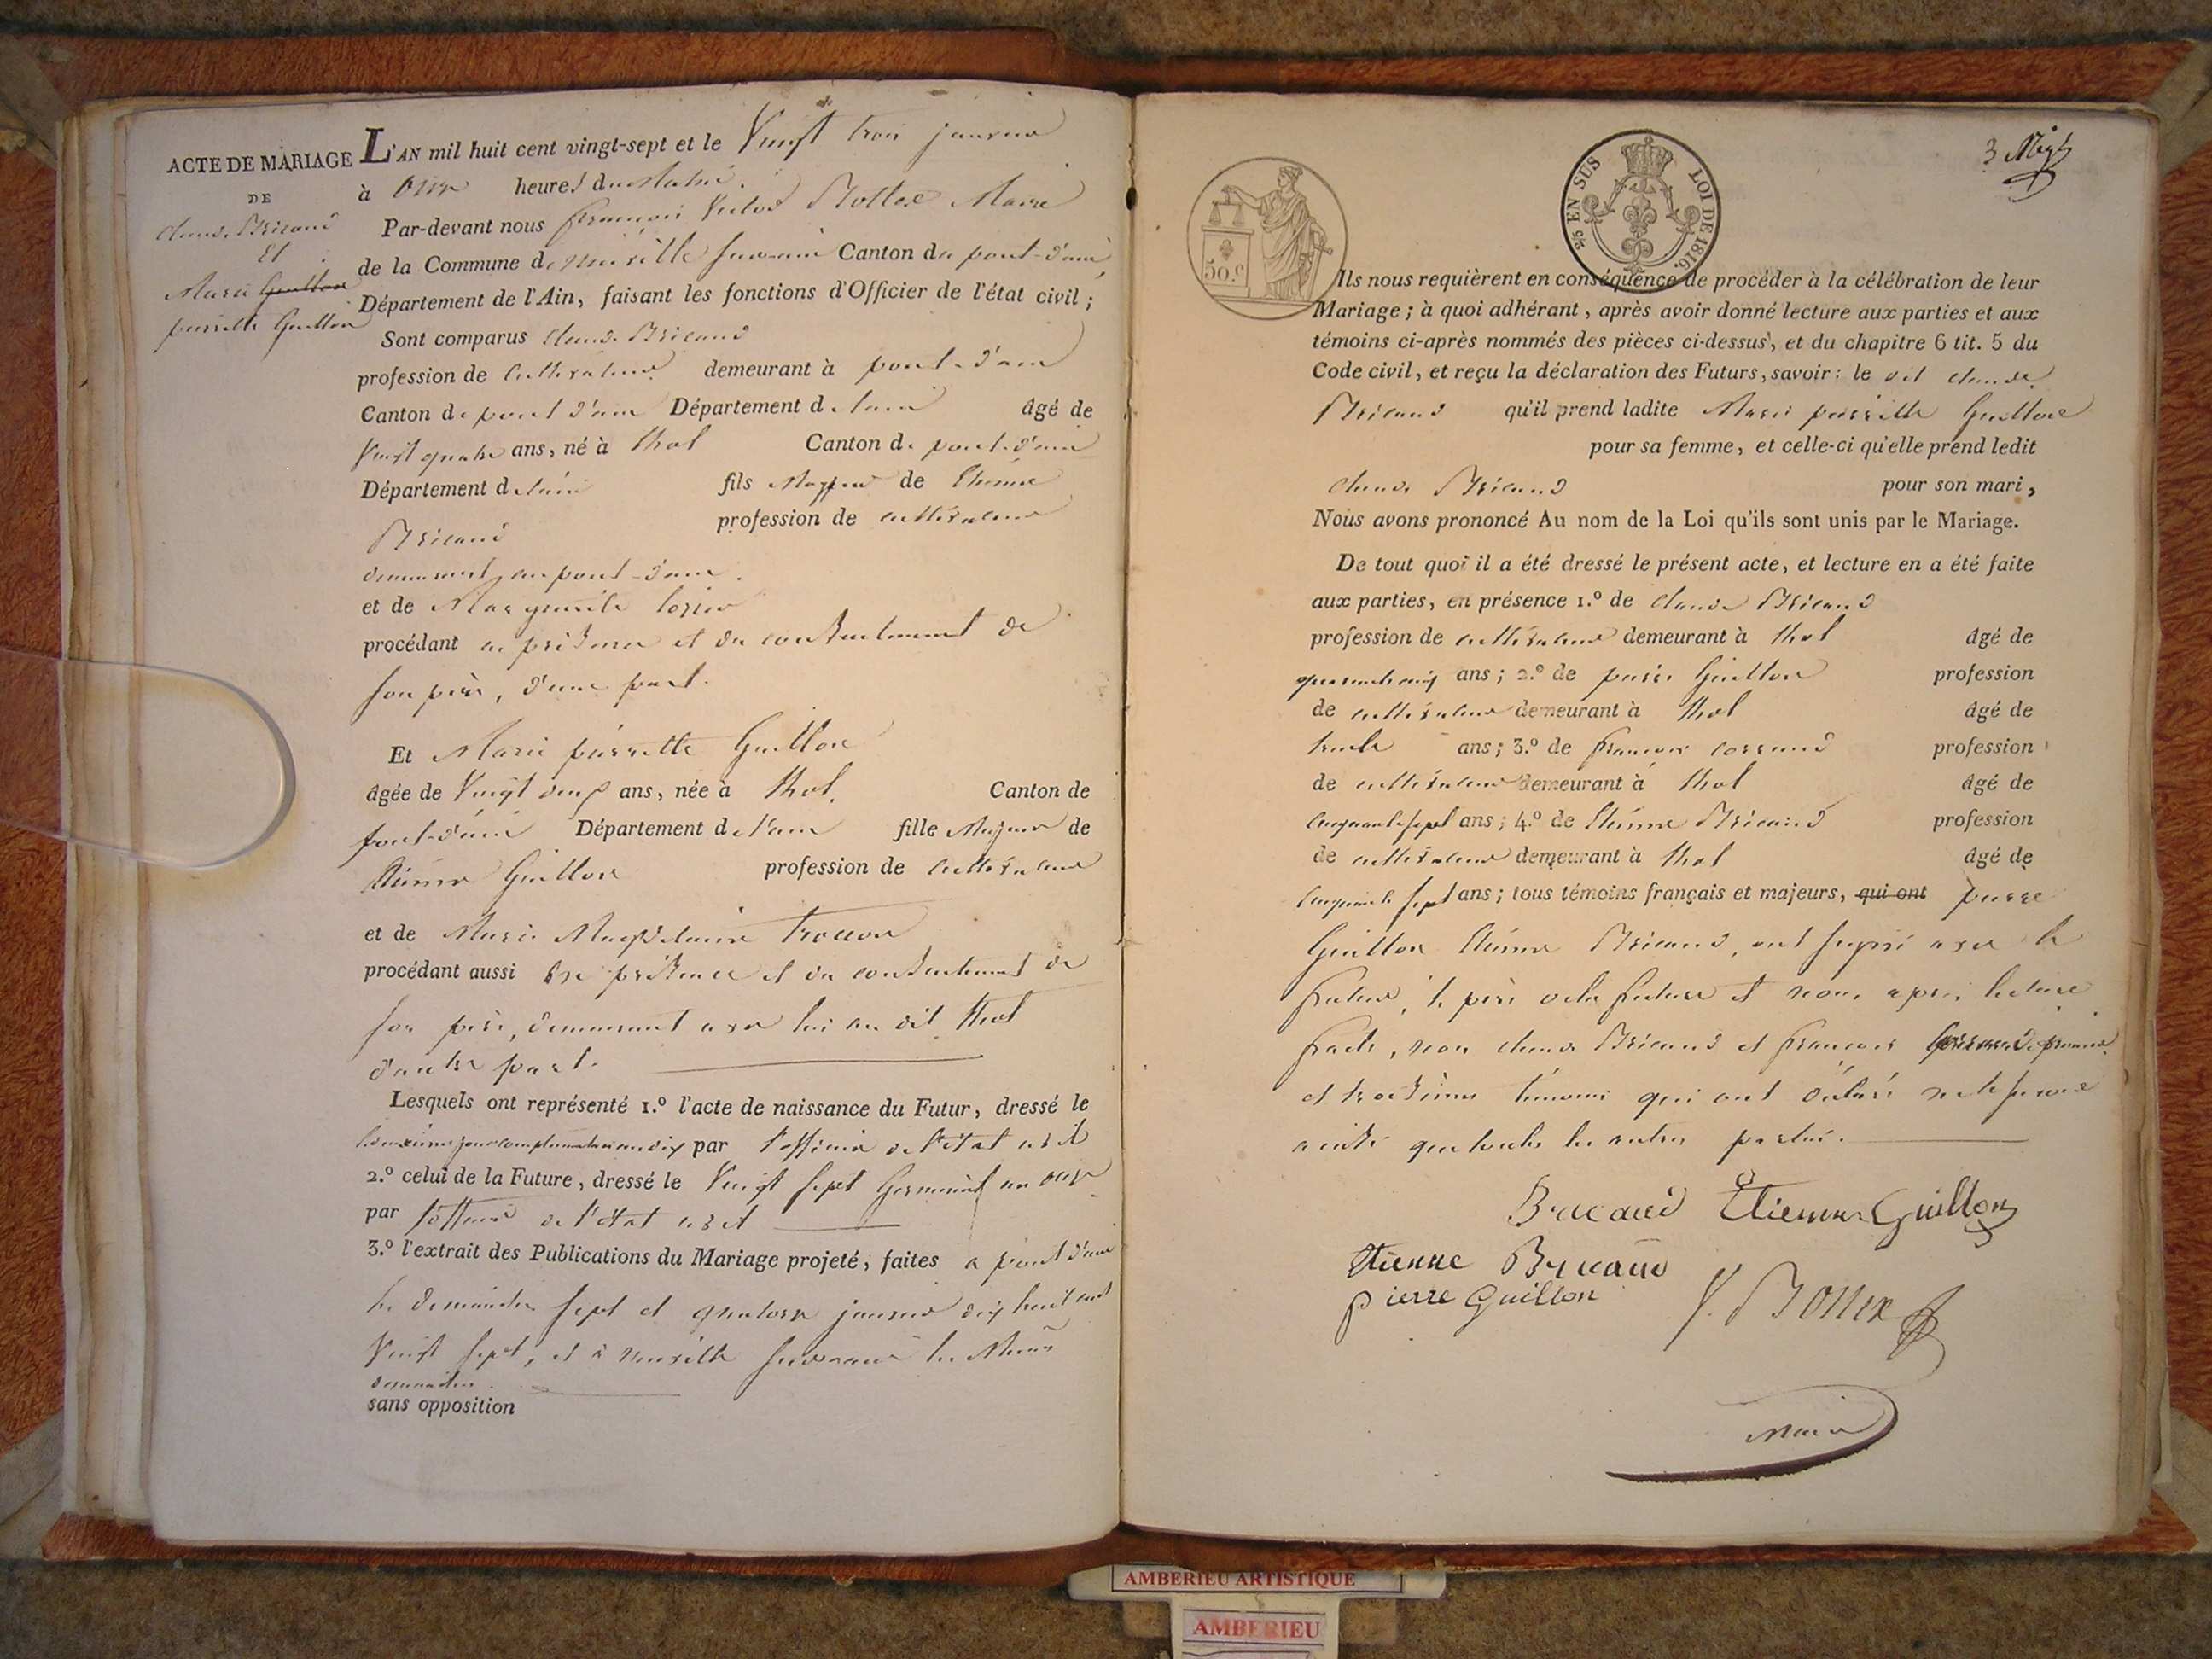 ACTE DE MARIAGE
DE
Claude Bricaud
Et
Marie Guillon
pierrette Guillon
L'AN mil huit cent vingt-sept et le Vingt trois janvier
à Onze heures du Matin.
Par-devant nous francois Victor Bottex Maire
de la Commune de neuville sur ain Canton du pont-d'ain,
Département de l'Ain, faisant les fonctions d'Officier de l'état civil;
Sont comparus Claude Bricaud
profession de Cultivateur demeurant à pont-d'ain
Canton de pont d'ain Département de lain âgé de
Vingt quatre ans, né à thol Canton de pont-d'ain
Département de lain fils Majeur de Etienne
Bricaud profession de cultivateur
demeurant au pont-d'ain.
et de Marguerite
procédant en présence et du consentement de
son père, d'une part.
Et Marie pierrette Guillon
âgée de Vingt deux ans, née à thol, Canton de
pont-d'ain Département de l'ain fille Majeure de
Etienne Guillon profession de Cultivateur
et de Marie Magdelaine
procédant aussi en présence et du consentement de
son père, demeurant avec lui au dit thol
d'autre part.
Lesquels ont représenté 1.º l'acte de naissance du Futur, dressé le
jour complementaire an dix par l'officier de l'état civil
2.º celui de la Future, dressé le Vingt sept Germinal an onze
par l'officier de l'état civil
3.º l'extrait des Publications du Mariage projeté, faites a pont d'ain
les dimanches sept et quatorze janvier dix huit cent
Vingt sept, et à neuville sur ain les Mêmes
dimanches.
sans opposition
50.c
5/2 EN SUS LOI DE 1816.
3
Ils nous requièrent en conséquence de procéder à la célébration de leur
Mariage; à quoi adhérant, après avoir donné lecture aux parties et aux
témoins ci-après nommés des pièces ci-dessus, et du chapitre 6 tit. 5 du
Code civil, et reçu la déclaration des Futurs, savoir: le dit claude
Bricaud qu'il prend ladite Marie pierrette Guillon
pour sa femme, et celle-ci qu'elle prend ledit
claude Bricaud pour son mari,
Nous avons prononcé Au nom de la Loi qu'ils sont unis par le Mariage.
De tout quoi il a été dressé le présent acte, et lecture en a été faite
aux parties, en présence 1.º de claude Bricaud
profession de cultivateur demeurant à thol âgé de
quarante cinq ans; 2.º de pierre Guillon profession
de cultivateur demeurant à thol âgé de
trente ans; 3.º de francois profession
de cultivateur demeurant à thol âgé de
cinquante sept ans; 4.º de Etienne Bricaud profession
de cultivateur demeurant à thol âgé de
cinquante sept ans; tous témoins français et majeurs, qui ont pierre
Guillon Etienne Bricaud, ont signé avec le
futur, le père de la future et nous après lecture
faite, non claude Bricaud et francois premier
et troisième témoins qui ont déclaré ne le savoir
ainsi que toutes les autres parties.
Bricaud Etienne Guillon
Etienne Bricaud
pierre Guillon V. Bottex
Maire
AMBERIEU ARTISTIQUE
AMBERIEU